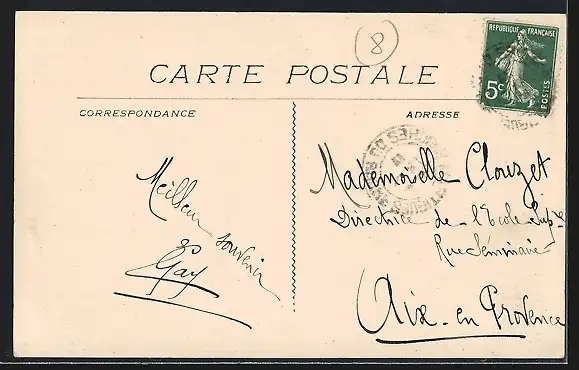 8
RÉPUBLIQUE FRANÇAISE
5c
POSTES
CARTE POSTALE
CORRESPONDANCE
ADRESSE
Meilleur souvenir
Gay
Mademoiselle Clouzet
Directrice de l'Ecole Supre
Rue Séminaire
Aix-en Provence